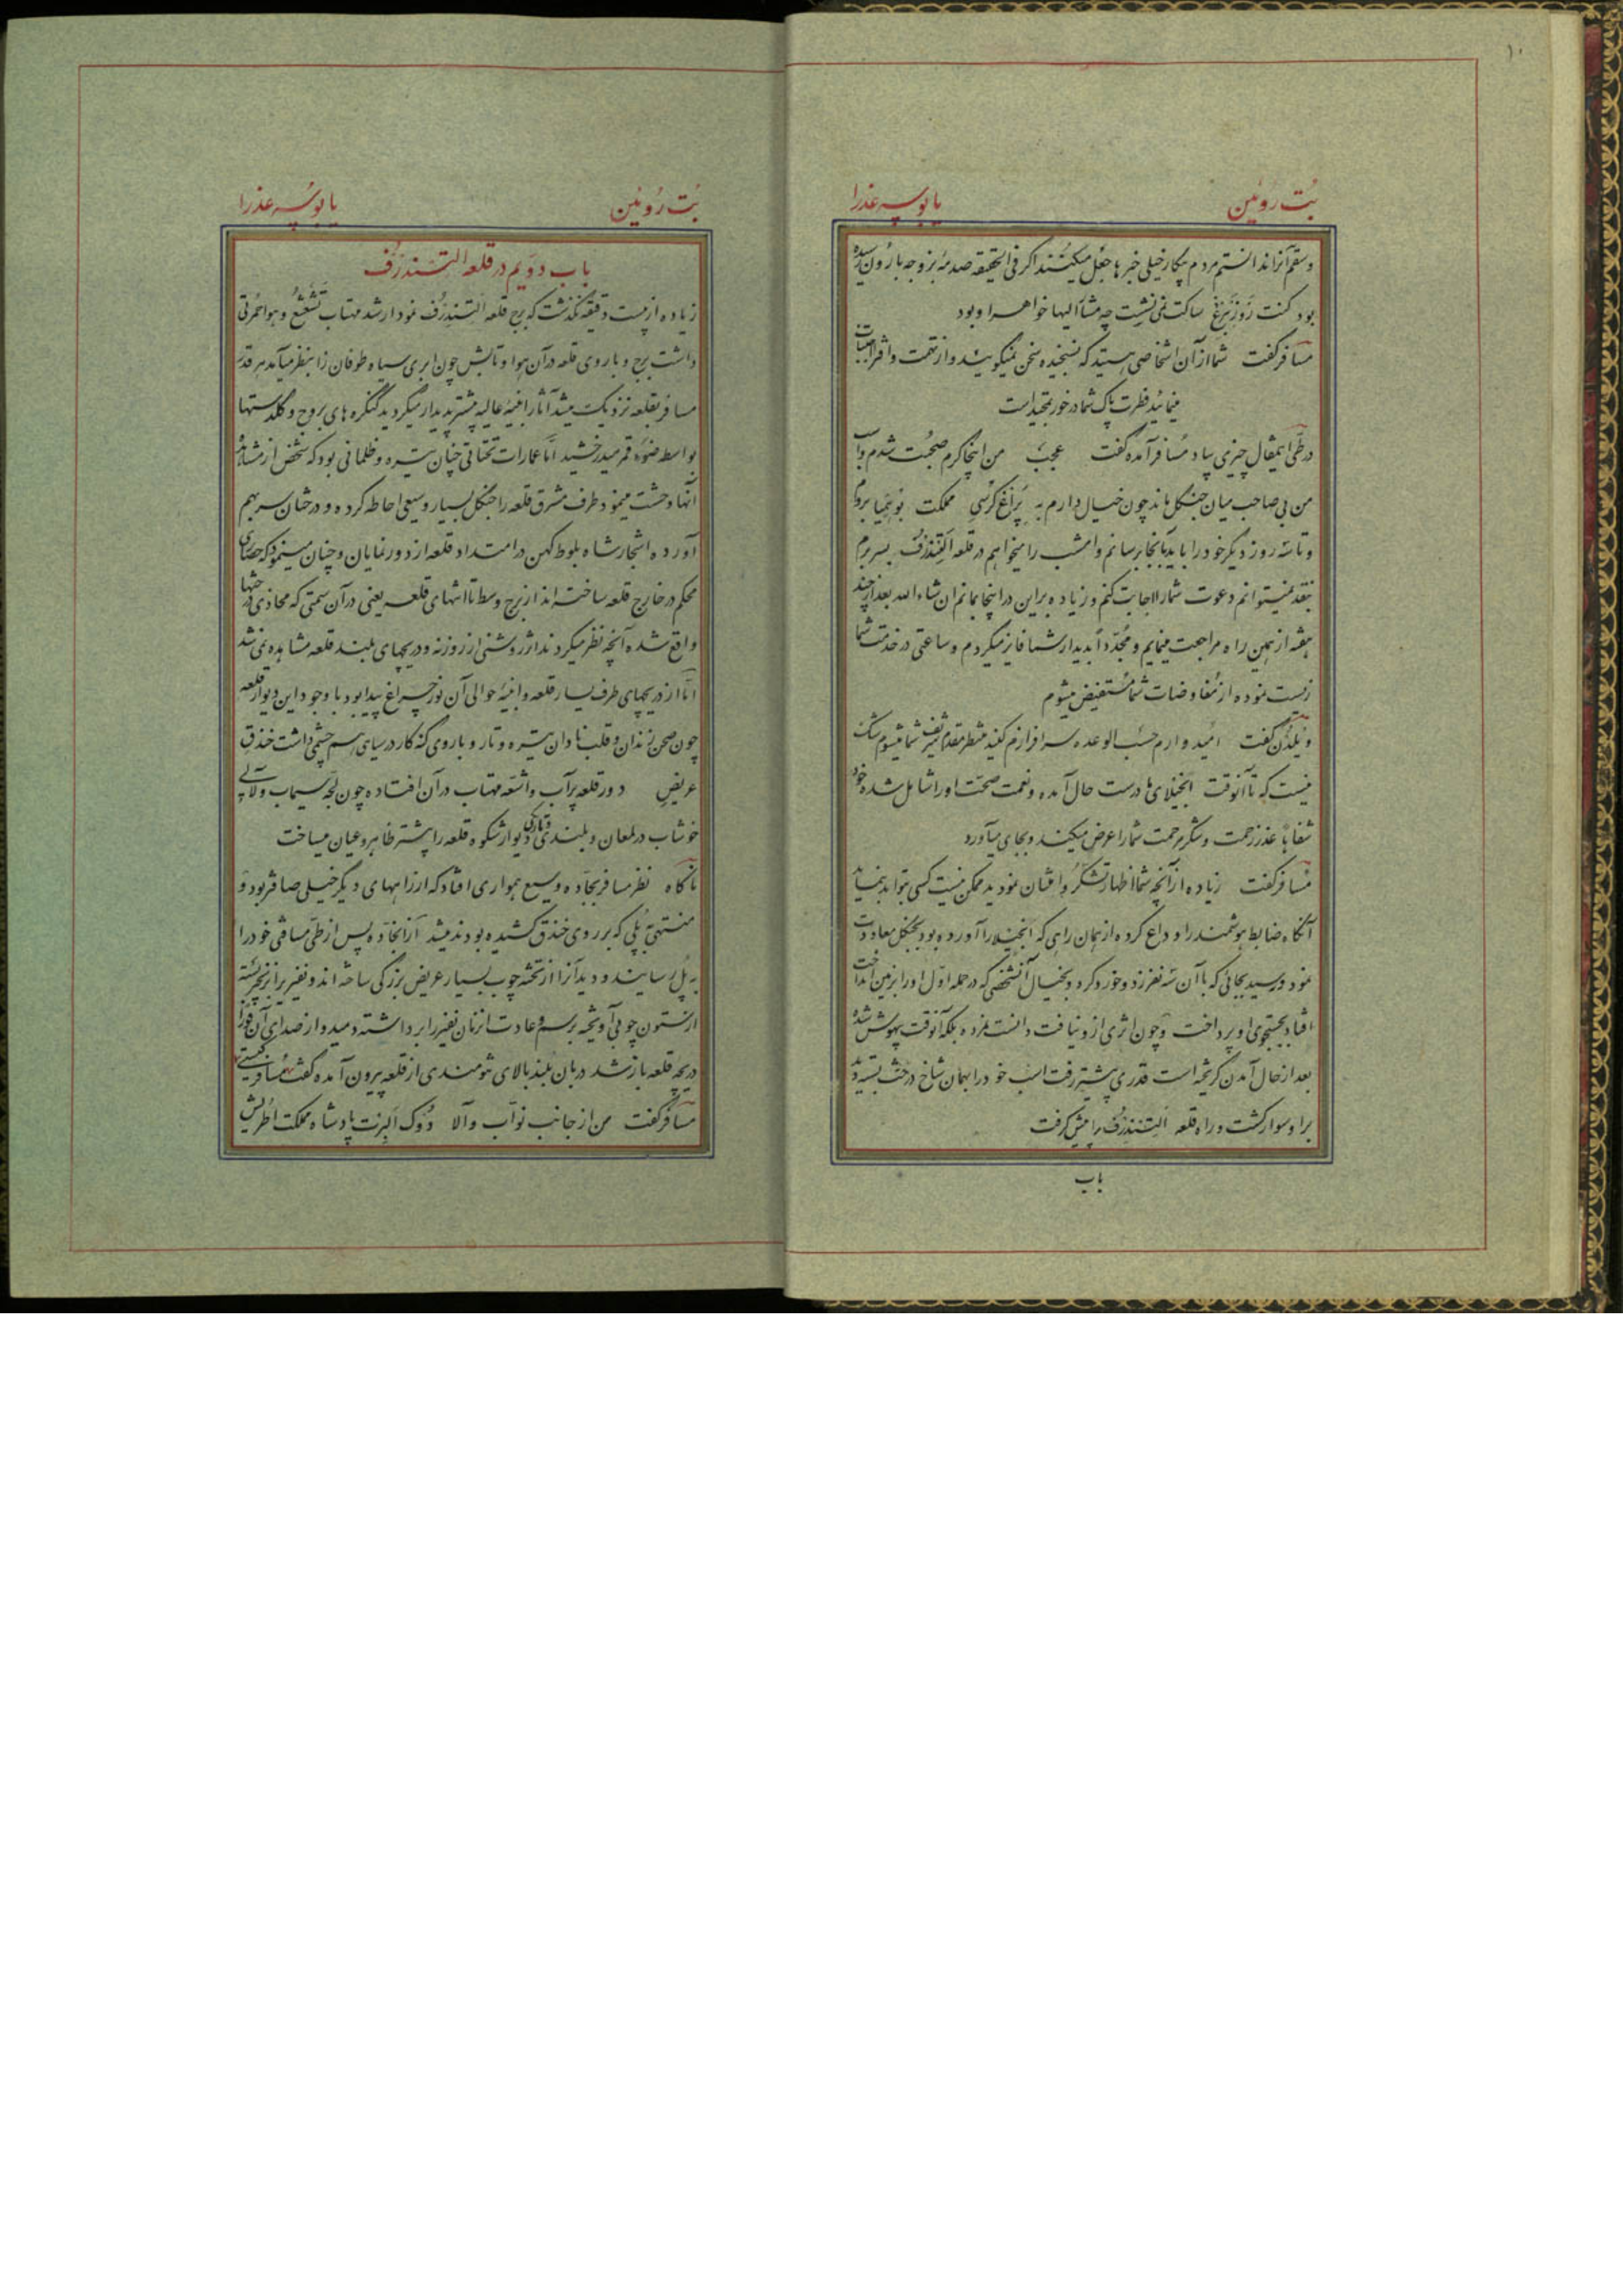 ۱۰
بُت رُوئین
یا بوسه عذرا
و سقم آنرا ندانستم مردم بیکار خیلی خبرها جعل میکنند اگر فی الحقیقه صدمۀ بزوجه بارُون رسیده
بود کنت رُوزنبرغ ساکت نمی نشست چه مشارالیها خواهر او بود
مسافر گفت شما از آن اشخاصی هستید که نسنجیده سخن نمیگویند و از تهمت و افترا اجتناب
مینمایند فطرت پاک شما در خور تمجید است
در طی اینمقال چیزی بیاد مسافر آمده گفت عجب من اینجا گرم صحبت شدم و اسب
من بی صاحب میان جنگل ماند چون خیال دارم به پراغ کرسی مملکت بوهمیا بروم
و تا سه روز دیگر خود را باید بآنجا برسانم و امشب را میخواهم در قلعه التندرُف بسر برم
بنقد نمیتوانم دعوت شما را اجابت کنم و زیاده بر این در اینجا بمانم ان شاء الله بعد از چند
هفته از همین راه مراجعت مینمایم و مجدّداً بدیدار شما فایز میگردم و ساعتی در خدمت شما
زیست نموده از مفاوضات شما مستفیض میشوم
ویلدُن گفت امید وارم حسب الوعده سرافرازم کنید منتظر مقدم شریف شما میشوم شک
نیست که تا آنوقت آنجیلای ما درست حال آمده و نعمت صحت او را شامل شده خود
شفاهاً عذر زحمت و شکر مرحمت شما را عرض میکند و بجای میآورد
مسافر گفت زیاده از آنچه شما اظهار تشکّر و امتنان نمودید ممکن نیست کسی بتواند بنماید
آنگاه ضابط هوشمند را وداع کرده از همان راهی که آنجیلا را آورده بود بجنگل معاودت
نمود و رسید بجائی که با آن سه نفر زد و خورد کرد و بخیال آنشخصی که در حمله اوّل او را بزمین انداخت
افتاد بجستجوی او پرداخت و چون اثری از او نیافت دانست نمرده بلکه آنوقت بیهوش شده
بعد از حال آمدن گریخته است قدری پیشتر رفت اسب خود را بهمان شاخ درخت بسته دید
بر او سوار گشت و راه قلعه التندرُف را پیش گرفت
باب
بُت رُوئین
یا بوسه عذرا
باب دویم در قلعه التندرُف
زیاده از بیست دقیقه نگذشت که برج قلعه التندرُف نمودار شد مهتاب تشعشع و هوا حُمرتی
داشت برج و باروی قلعه در آن هوا و تابش چون ابری سیاه طوفان زا بنظر میآمد هر قدر
مسافر بقلعه نزدیک میشد آثار ابنیۀ عالیه بیشتر پدیدار میگردید کنگره های بروج و گلدستها
بواسطه ضوء قمر میدرخشید امّا عمارات تحتانی چنان تیره و ظلمانی بود که شخص از مشاهده
آنها وحشت مینمود طرف مشرق قلعه را جنگل بسیار وسیعی احاطه کرده و درختان سر بهم
آورده اشجار شاه بلوط کهن در امتداد قلعه از دور نمایان و چنان مینمود که حصاری
محکم در خارج قلعه ساخته اند از برج وسط تا انتهای قلعه یعنی در آن سمتی که محاذی درختها
واقع شده آنچه نظر میکردند اثر روشنی از روزنه و دریچهای بلند قلعه مشاهده نمی شد
امّا از دریچهای طرف یسار قلعه و ابنیۀ حوالی آن نور چراغ پیدا بود با وجود این دیوار قلعه
چون صحن زندان و قلب نادان تیره و تار و باروی کنه کار در سیاهی هم چشمی داشت خندق
عریض دور قلعه پر آب و اشعّه مهتاب در آن افتاده چون لجّه سیماب و لآلی
خوشاب در لمعان و بلندی و تاریکی دیوار شکوه قلعه را بیشتر ظاهر و عیان میساخت
ناگاه نظر مسافر بجادّه وسیع همواری افتاد که از راههای دیگر خیلی صافتر بود و
منتهی به پُلی که بر روی خندق کشیده بودند میشد از آنجادّه پس از طی مسافتی خود را
به پُل رسانیند و دید آنرا از تخته چوب بسیار عریض بزرگی ساخته اند و نفیری از زنجیر بسته
از ستون چوبی آویخته برسم و عادت انزمان نفیر را برداشته دمید و از صدای آن فوراً
دریچه قلعه باز شد دربان بلند بالای تنومندی از قلعه بیرون آمده گفت مسافر کیستی
مسافر گفت من از جانب نوّاب والا دُوک آلبرت پادشاه مملکت اطریش